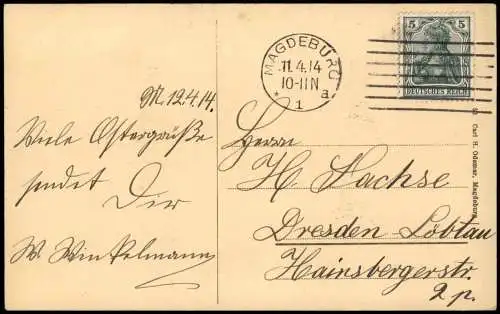 M. 12.4.14.
Viele Ostergrüße
sendet Dir
W. Winkelmann
MAGDEBURG
11.4.14
10-11N
* 1 a
5 5
DEUTSCHES REICH
Herrn
H. Sachse
Dresden-Löbtau
Hainsbergerstr.
2 p.
Carl H. Odemar, Magdeburg